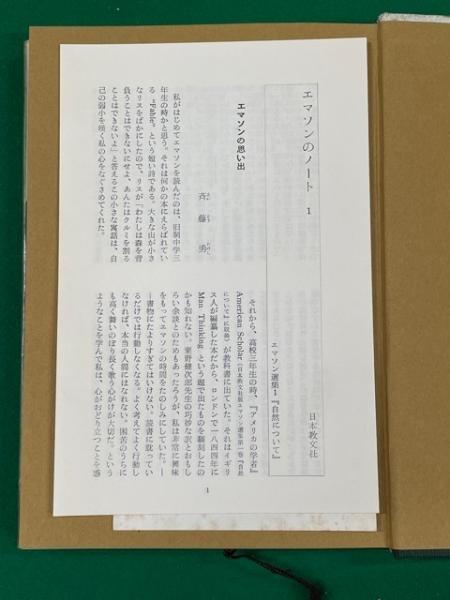 エマソンのノート　1
エマソン選集1『自然について』
日本教文社
エマソンの思い出
斉藤　勇
私がはじめてエマソンを読んだのは、旧制中学三
年生の時かと思う。それは何かの本にえらばれてい
る、"Fable" という短い詩である。大きな山が小さ
なリスをばかにしたので、リスが「わたしは森を背
負うことはできないにせよ、あんたはクルミを割る
ことはできないよ」と答えるこの小さな寓話は、自
己の弱小を嘆く私の心をなぐさめてくれた。
それから、高校三年生の時、『アメリカの学者』
American Scholar（日本教文社版エマソン選集第一巻『自然
について』に収録）が教科書に出ていた。それはイギリ
ス人が編纂した本だから、ロンドンで一八四四年に
Man Thinking という題で出たものを翻刻したの
かも知れない。粟野健次郎先生の巧妙な訳とおもし
ろい余談とのためもあったろうが、私は非常に興味
をもってエマソンの時間をたのしみにしていた。—
—書物にたよりすぎてはいけない。読書に耽ってい
るだけでは行動しなくなる。よく考えてよく行動し
なければ、本当の人間にはなれない。困苦のうちに
も高く舞いのぼり長く歌う心がけが大切だ。という
ようなことを学んで私は、心がおどり立つことを感
1